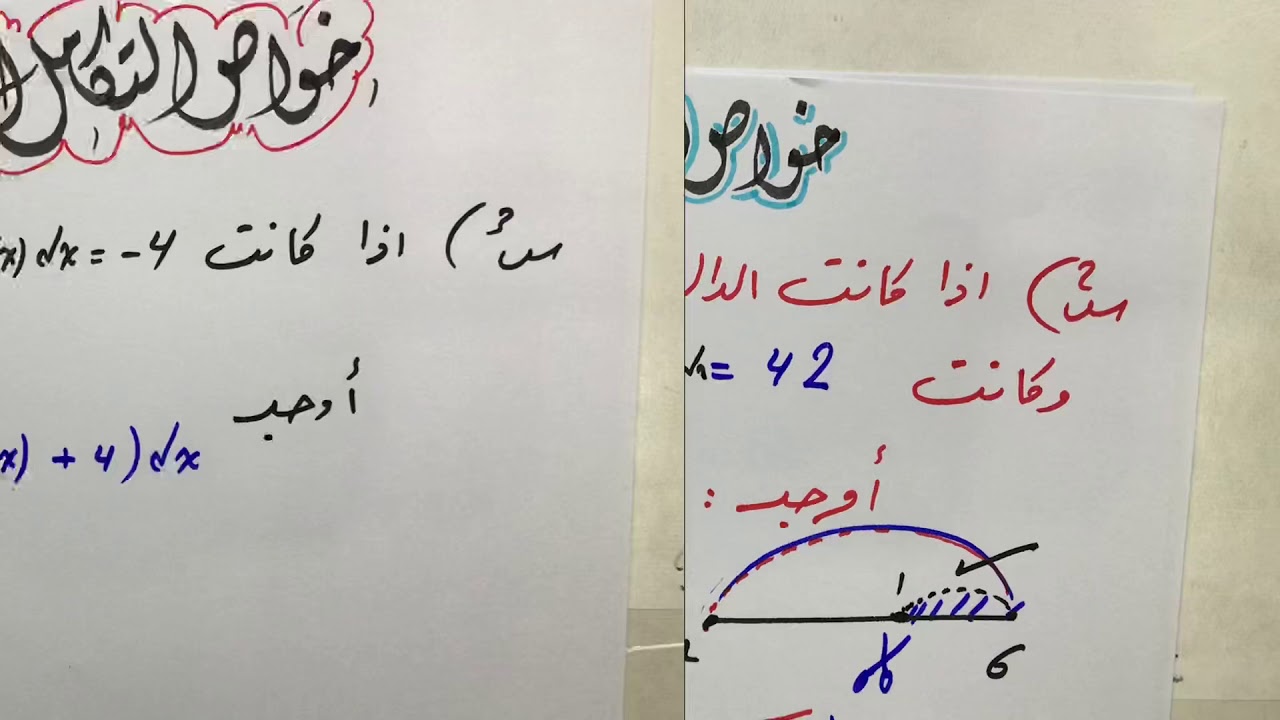 خواص التكامل
س) اذا كانت x) dx = -4
أوجد
x) + 4) dx
خواص
س) اذا كانت الدال
وكانت = 42
أوجد :
1
6